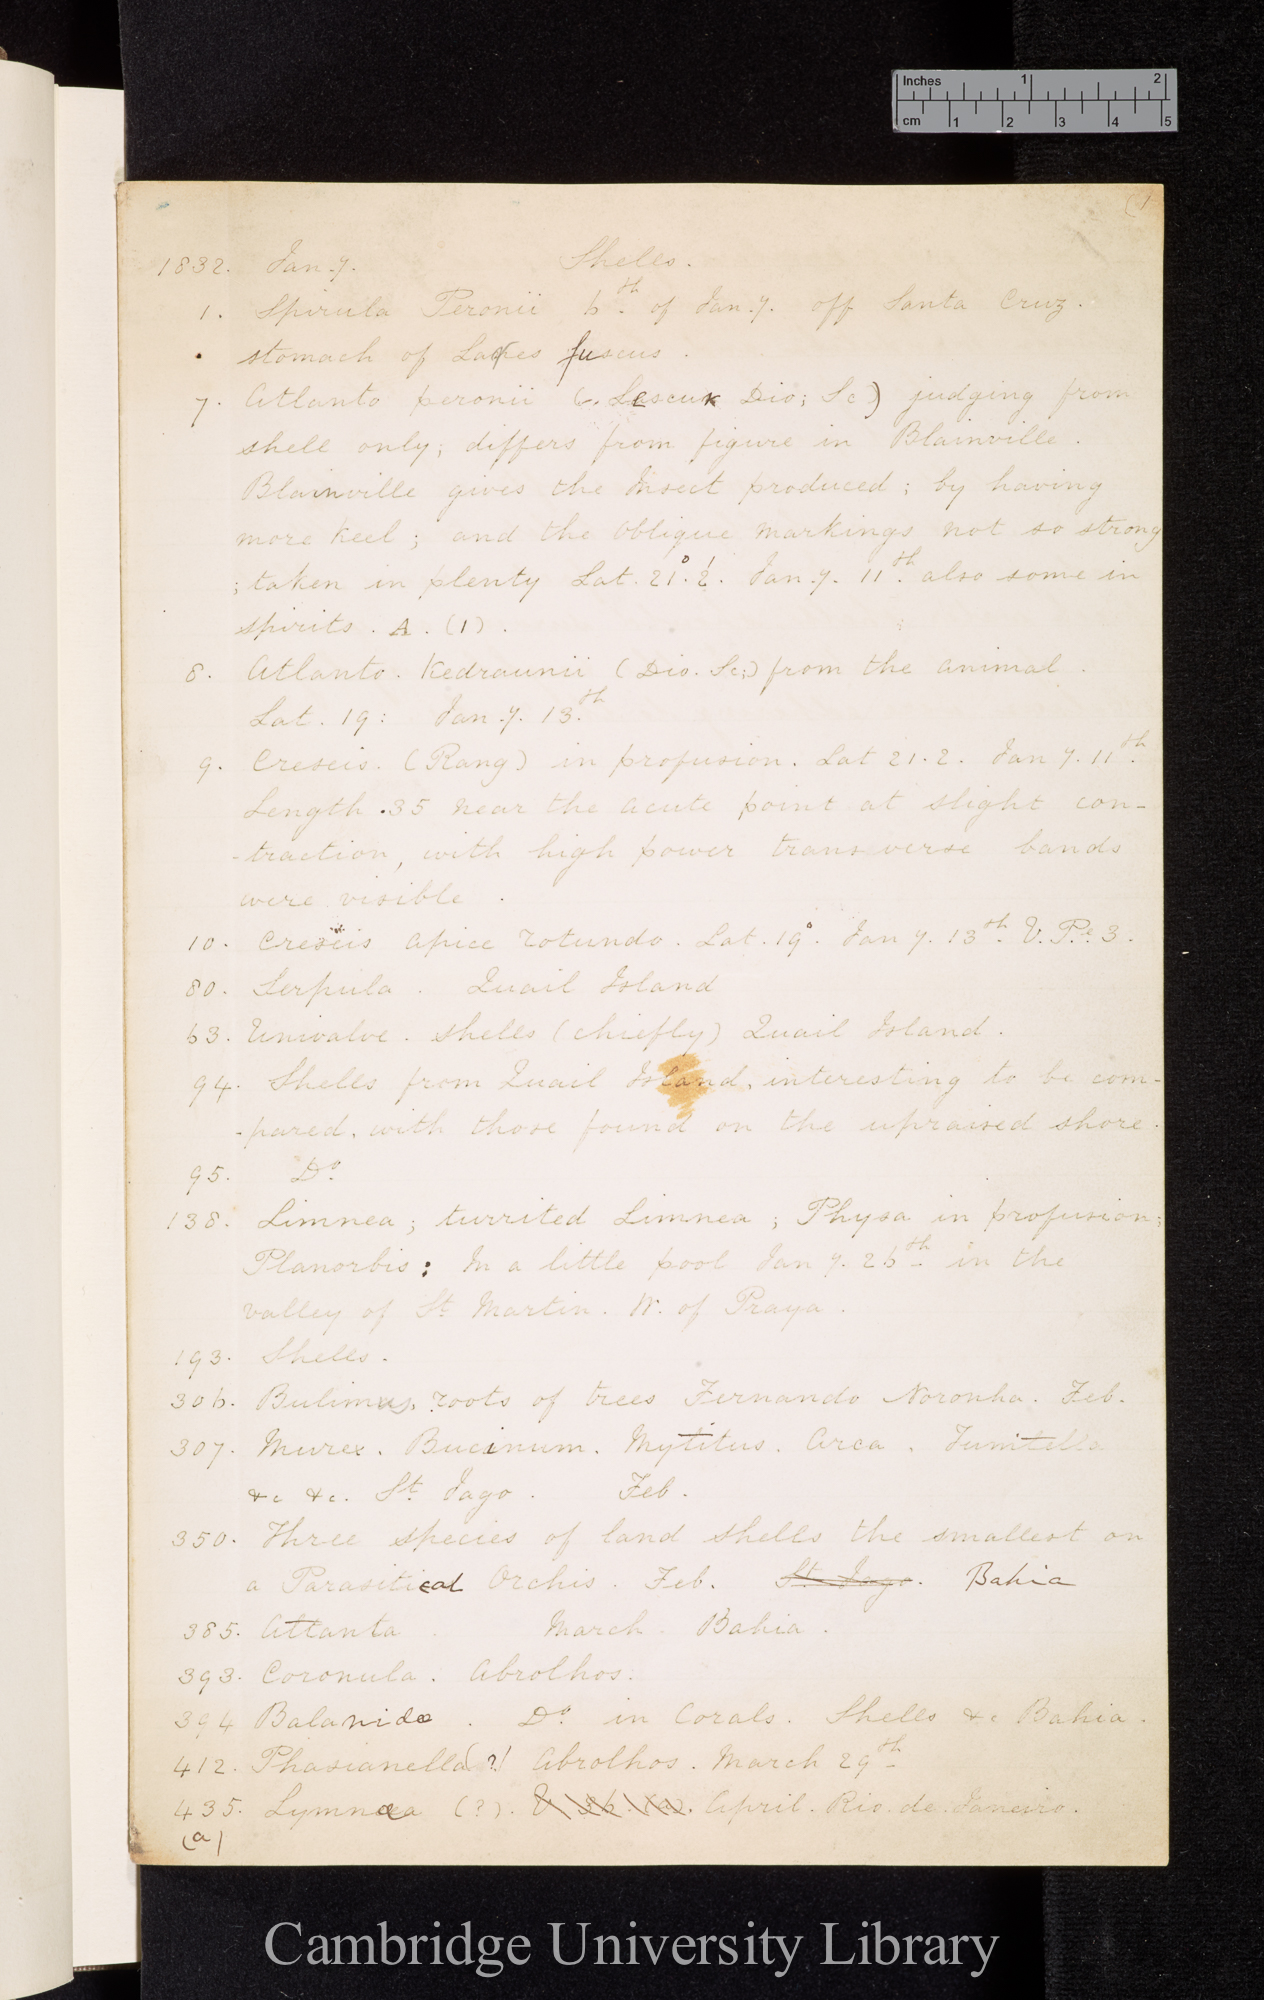 Inches 1 2
cm 1 2 3 4 5
(1
1832. Jan.y. Shells.
1. Spirula Peronii 6th. of Jan.y. off Santa Cruz.
stomach of fuscus.
7. Atlanto peronii (v. Dic; Sc) judging from
shell only; differs from figure in Blainville.
Blainville gives the Insect produced; by having
more keel; and the oblique markings not so strong
; taken in plenty Lat. 21°. 2'. Jan.y. 11th. also some in
spirits. A. (1).
8. Atlanto. Kedraunii (Dic. Sc;) from the animal.
Lat. 19: Jan.y. 13.th
9. Creseis. (Rang) in profusion. Lat 21.2. Jan y. 11th.
Length .35 near the acute point at slight con-
-traction, with high power transverse bands
were visible.
10. Creseis apice rotundo. Lat. 19°. Jan y. 13th. V. P.e. 3.
80. Serpula. Quail Island
63. Univalve. shells (chiefly) Quail Island.
94. Shells from Quail Island, interesting to be com-
-pared, with those found on the upraised shore.
95. Do.
138. Limnea; turrited Limnea; Physa in profusion;
Planorbis: In a little pool Jan y. 26th. in the
valley of St Martin. W. of Praya.
193. Shells.
306. Bulimus, roots of trees Fernando Noronha. Feb.
307. Murex. Bucinum. Mytitus. Arca. Turritella
&c &c. St. Jago. Feb.
350. Three species of land shells the smallest on
a Parasitical Orchis. Feb. St. Jago. Bahia
385. Attanta March. Bahia.
393. Coronula. Abrolhos.
394 Balanidæ. Do. in Corals. Shells &c Bahia.
412. Phasianella(?) Abrolhos. March 29th
435. Lymnæa (?). April. Rio. de Janeiro.
(a)
Cambridge University Library